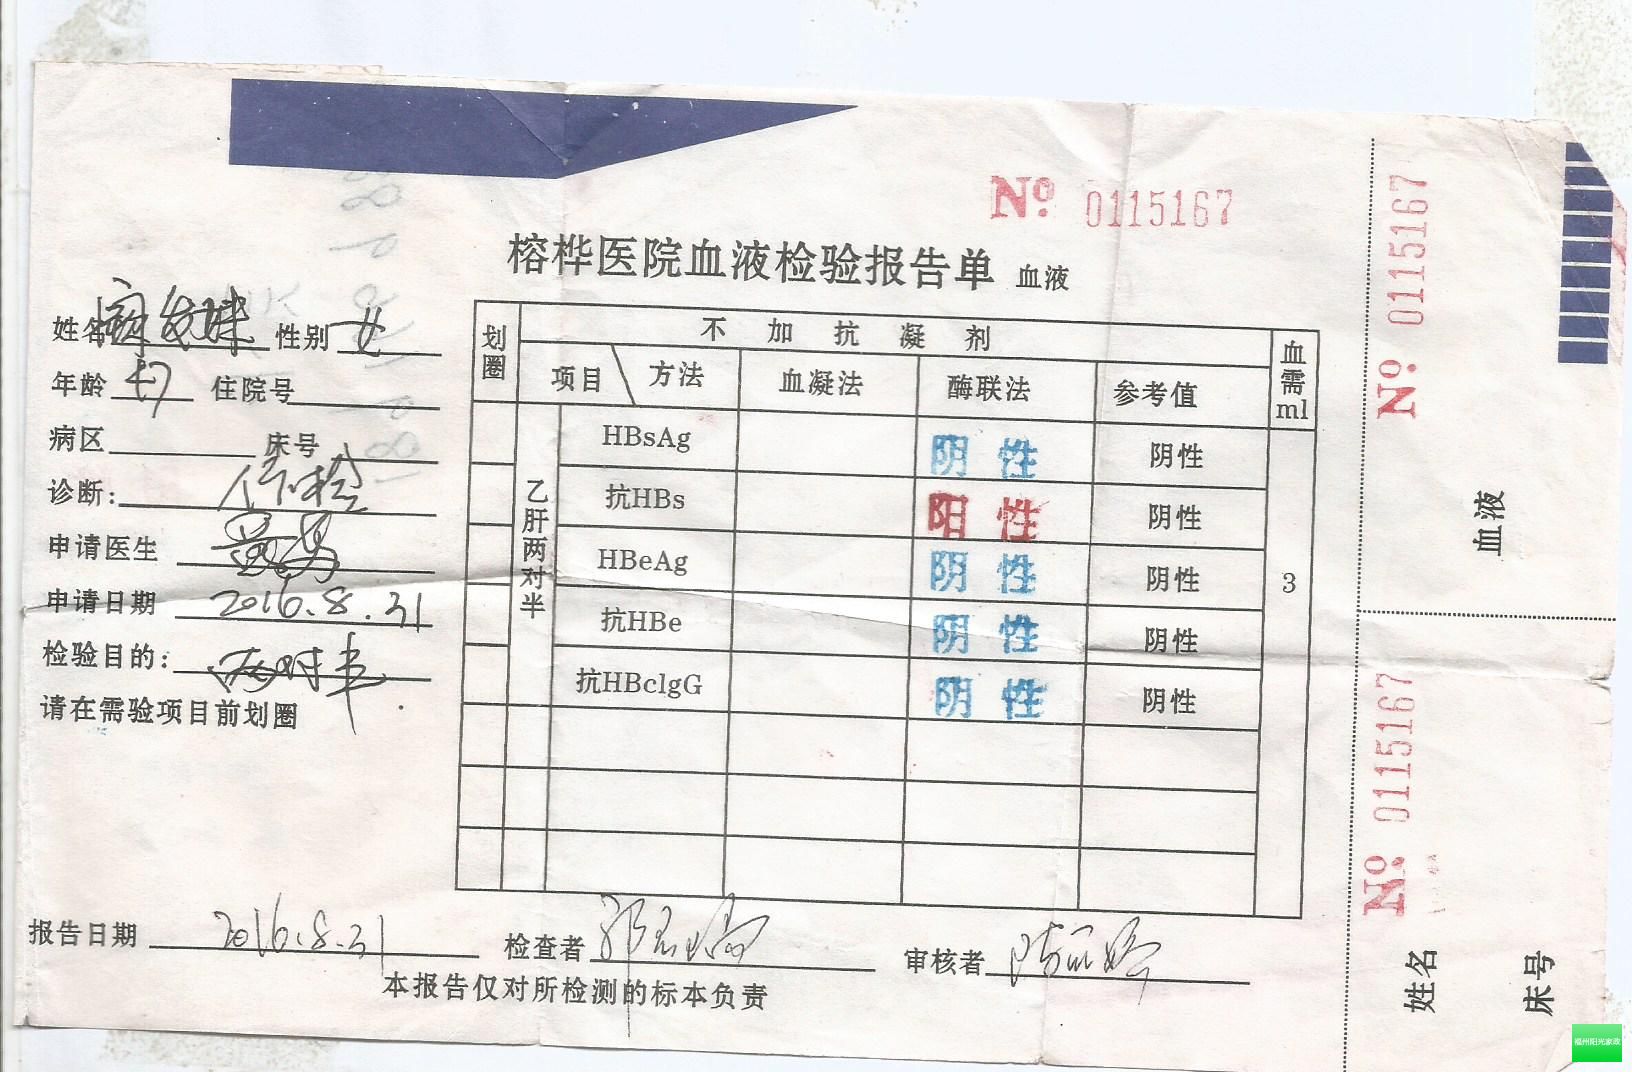 № 0115167
榕桦医院血液检验报告单 血液
姓名 性别 女
年龄 47 住院号
病区 床号
诊断: 体检
申请医生
申请日期 2016.8.31
检验目的: 两对半
请在需验项目前划圈
划圈 不加抗凝剂 血需ml
项目 方法 血凝法 酶联法 参考值
乙肝两对半 3
HBsAg 阴性 阴性
抗HBs 阳性 阴性
HBeAg 阴性 阴性
抗HBe 阴性 阴性
抗HBclgG 阴性 阴性
报告日期 2016.8.31 检查者 审核者
本报告仅对所检测的标本负责
№ 0115167
血液
№ 0115167
姓名
床号
福州阳光家政